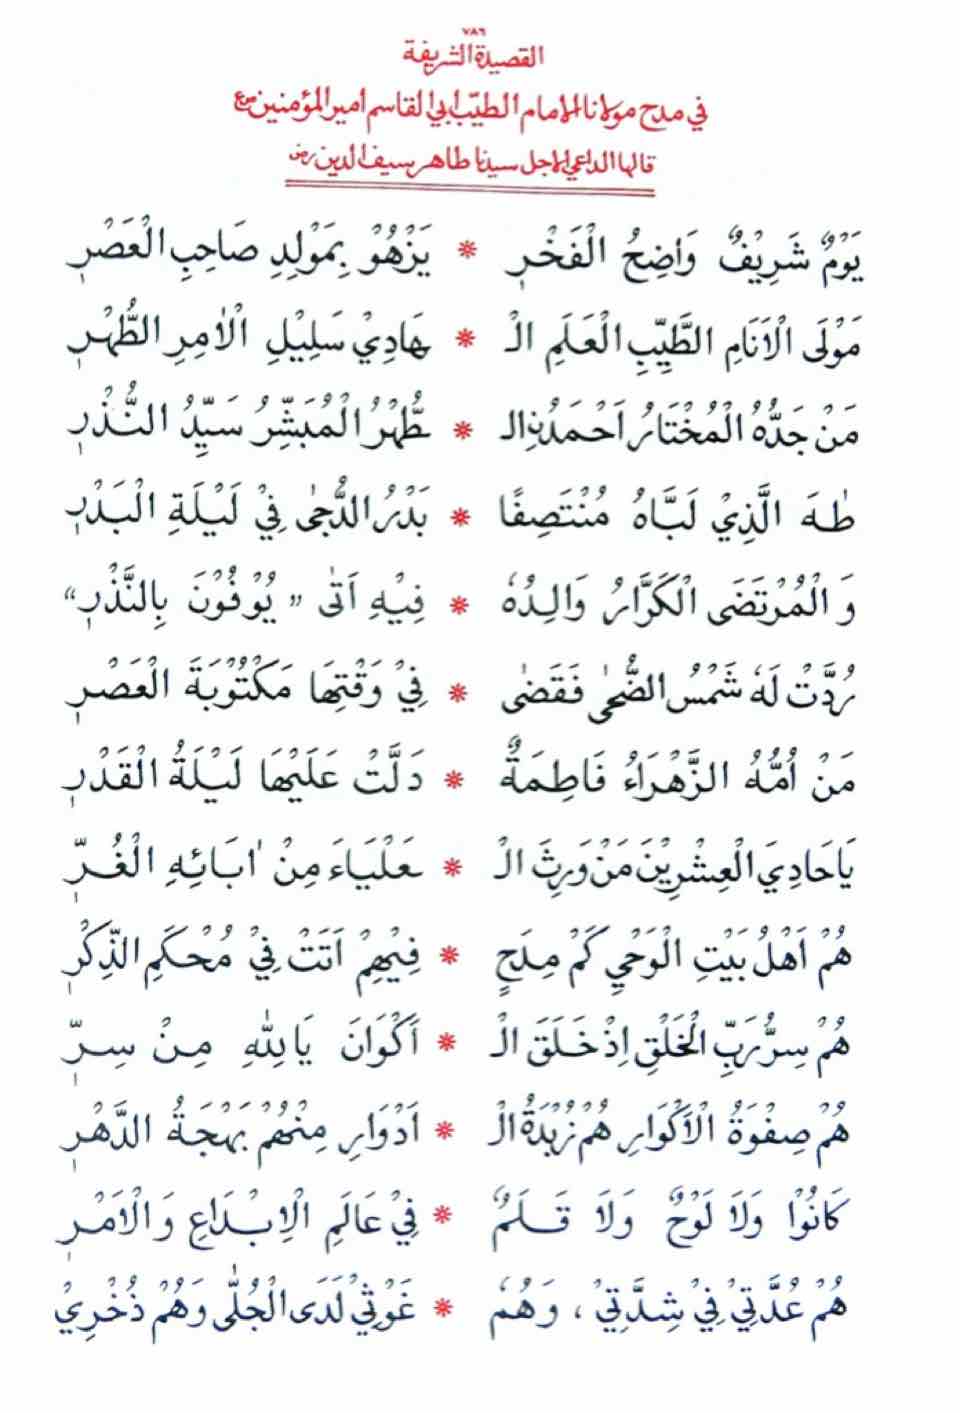 ٧٨٦
القصيدة الشريفة
في مدح مولانا الامام الطيّب ابي القاسم امير المؤمنين ص ع
قالها الداعي الاجل سيدنا طاهر سيف الدين رض
يَوْمٌ شَرِيْفٌ وَاضِحُ الْفَخْرِ * يَزْهُوْ بِمَوْلِدِ صَاحِبِ الْعَصْرِ
مَوْلَى الْاَنَامِ الطَّيِّبِ الْعَلَمِ الْـ * ـهَادِيْ سَلِيْلِ الْاٰمِرِ الطُّهْرِ
مَنْ جَدُّهُ الْمُخْتَارُ اَحْمَدُنِ الـ * ـطُّهْرُ الْمُبَشِّرُ سَيِّدُ النُّذْرِ
طٰهَ الَّذِيْ لَبَّاهُ مُنْتَصِفًا * بَدْرُ الدُّجٰى فِيْ لَيْلَةِ الْبَدْرِ
وَ الْمُرْتَضَى الْكَرَّارُ وَالِدُهٗ * فِيْهِ اَتٰى " يُوْفُوْنَ بِالنَّذْرِ"
رُدَّتْ لَهٗ شَمْسُ الضُّحٰى فَقَضٰى * فِيْ وَقْتِهَا مَكْتُوْبَةَ الْعَصْرِ
مَنْ اُمُّهُ الزَّهْرَاءُ فَاطِمَةٌ * دَلَّتْ عَلَيْهَا لَيْلَةُ الْقَدْرِ
يَا حَادِيَ الْعِشْرِيْنَ مَنْ وَرِثَ الْـ * ـعَلْيَاءَ مِنْ اٰبَائِهِ الْغُرِّ
هُمْ اَهْلُ بَيْتِ الْوَحْيِ كَمْ مِدَحٍ * فِيْهِمْ اَتَتْ فِيْ مُحْكَمِ الذِّكْرِ
هُمْ سِرُّ رَبِّ الْخَلْقِ اِذْ خَلَقَ الْـ * أَكْوَانَ يَا لِلّٰهِ مِنْ سِرِّ
هُمْ صِفْوَةُ الْأَكْوَارِ هُمْ زُبْدَةُ الْـ * اَدْوَارِ مِنْهُمْ بَهْجَةُ الدَّهْرِ
كَانُوْا وَلَا لَوْحٌ وَلَا قَلَمٌ * فِيْ عَالَمِ الْاِبْدَاعِ وَالْاَمْرِ
هُمْ عُدَّتِيْ فِيْ شِدَّتِيْ ، وَهُمْ * غَوْثِيْ لَدَى الْجُلّٰى وَهُمْ ذُخْرِيْ